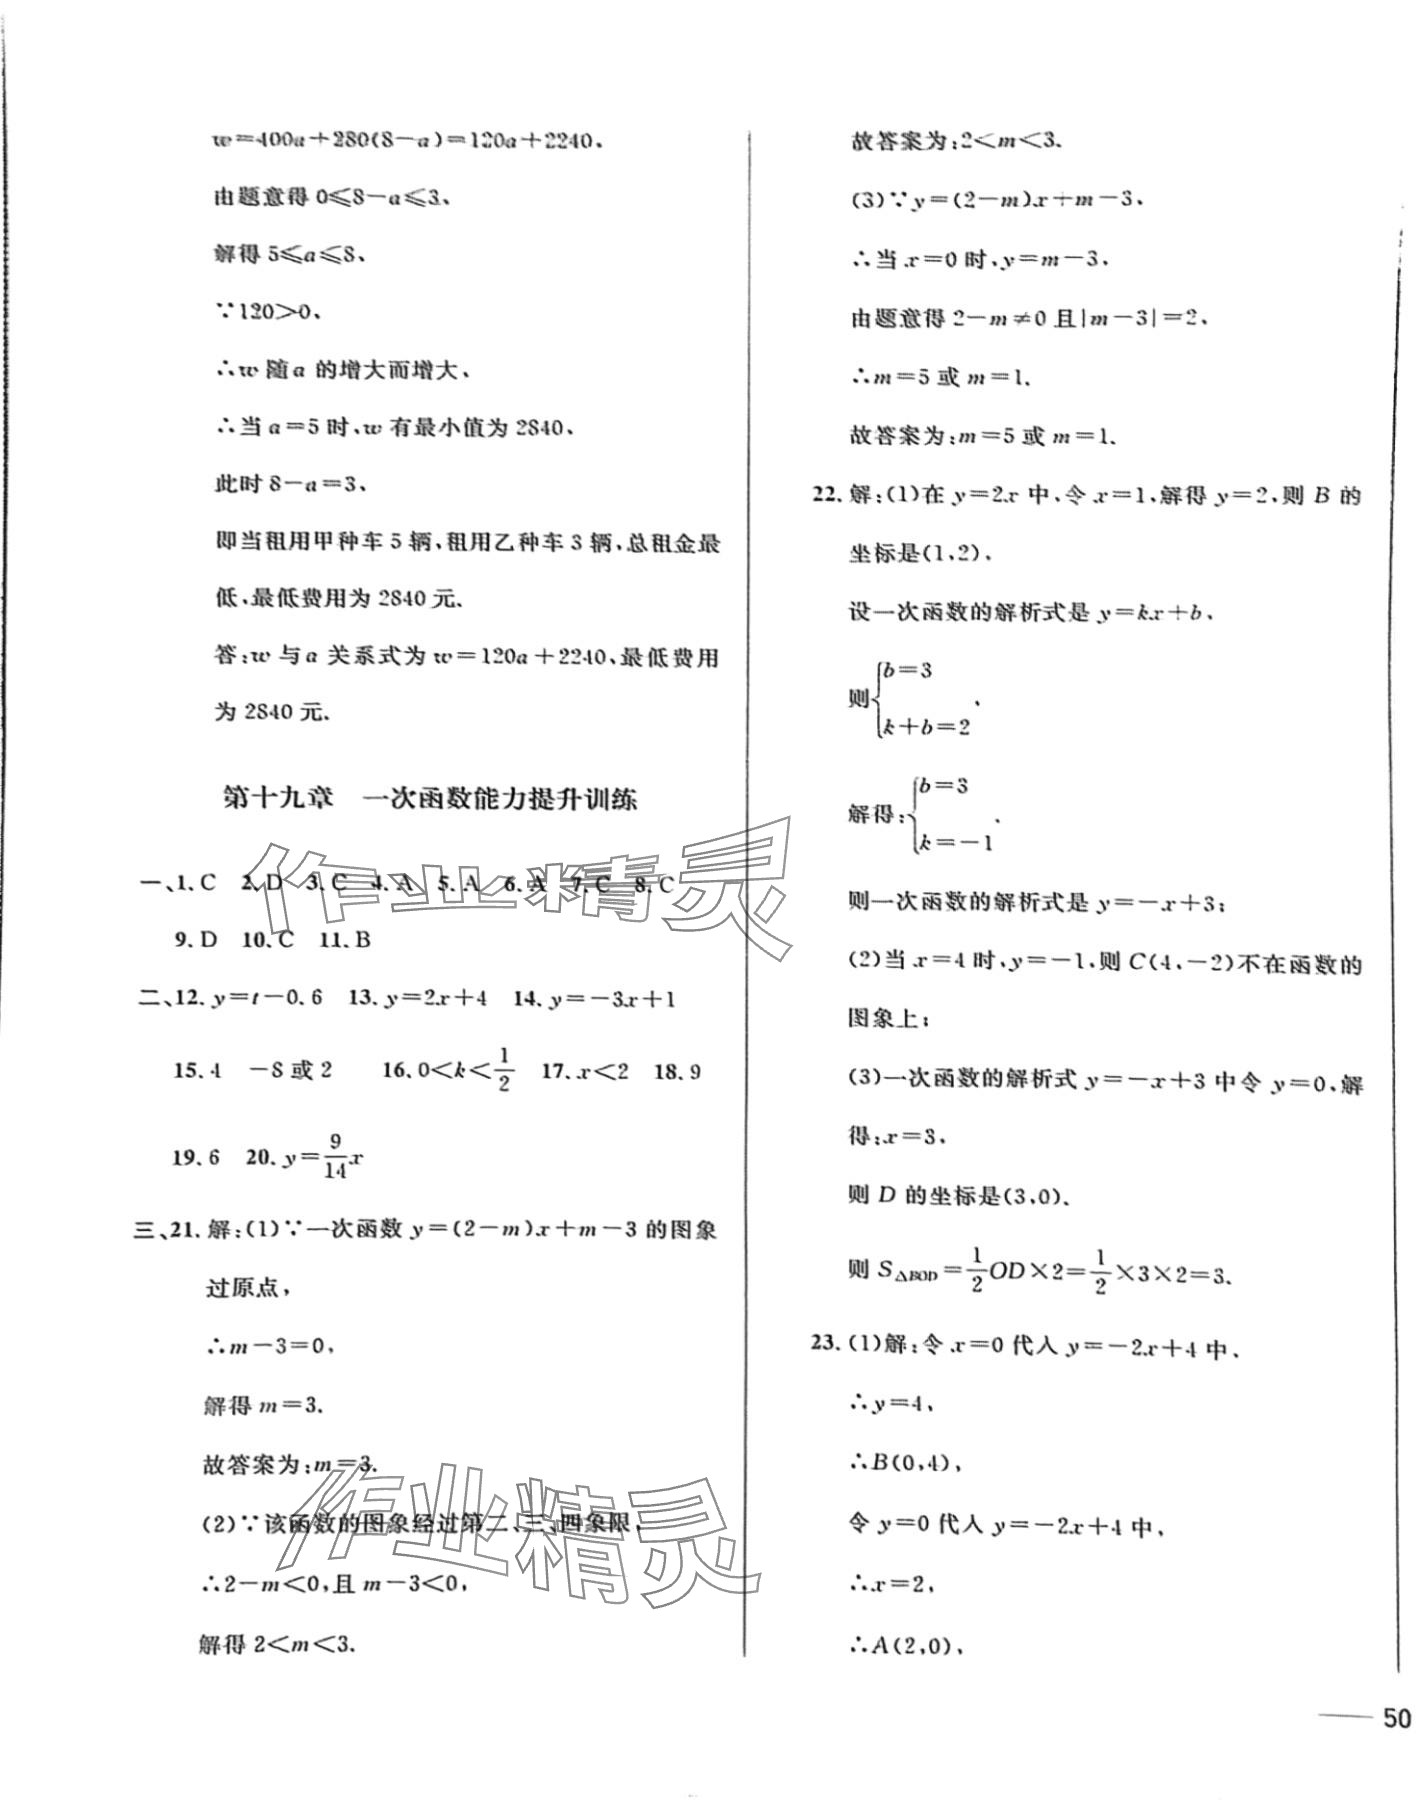 w=400a+280(8-a)=120a+2240,
由题意得 0⩽8-a⩽3,
解得 5⩽a⩽8,
∵120>0,
∴w 随 a 的增大而增大,
∴当 a=5 时,w 有最小值为 2840,
此时 8-a=3,
即当租用甲种车 5 辆,租用乙种车 3 辆,总租金最
低,最低费用为 2840 元.
答:w 与 a 关系式为 w=120a+2240,最低费用
为 2840 元.
第十九章 一次函数能力提升训练
一、1. C 2. D 3. C 4. A 5. A 6. A 7. C 8. C
9. D 10. C 11. B
二、12. y=t-0.6 13. y=2x+4 14. y=-3x+1
15. 4 -8 或 2 16. 0<k<1/2 17. x<2 18. 9
19. 6 20. y=9/14x
三、21. 解:(1)∵一次函数 y=(2-m)x+m-3 的图象
过原点,
∴m-3=0,
解得 m=3.
故答案为:m=3.
(2)∵该函数的图象经过第二、三、四象限,
∴2-m<0,且 m-3<0,
解得 2<m<3.
故答案为:2<m<3.
(3)∵y=(2-m)x+m-3,
∴当 x=0 时,y=m-3,
由题意得 2-m≠0 且|m-3|=2,
∴m=5 或 m=1.
故答案为:m=5 或 m=1.
22. 解:(1)在 y=2x 中,令 x=1,解得 y=2,则 B 的
坐标是(1,2),
设一次函数的解析式是 y=kx+b,
则{b=3
k+b=2,
解得:{b=3
k=-1,
则一次函数的解析式是 y=-x+3;
(2)当 x=4 时,y=-1,则 C(4,-2)不在函数的
图象上;
(3)一次函数的解析式 y=-x+3 中令 y=0,解
得:x=3,
则 D 的坐标是(3,0).
则 S△BOD=1/2OD×2=1/2×3×2=3.
23. (1)解:令 x=0 代入 y=-2x+4 中,
∴y=4,
∴B(0,4),
令 y=0 代入 y=-2x+4 中,
∴x=2,
∴A(2,0),
50
作业精灵
作业精灵